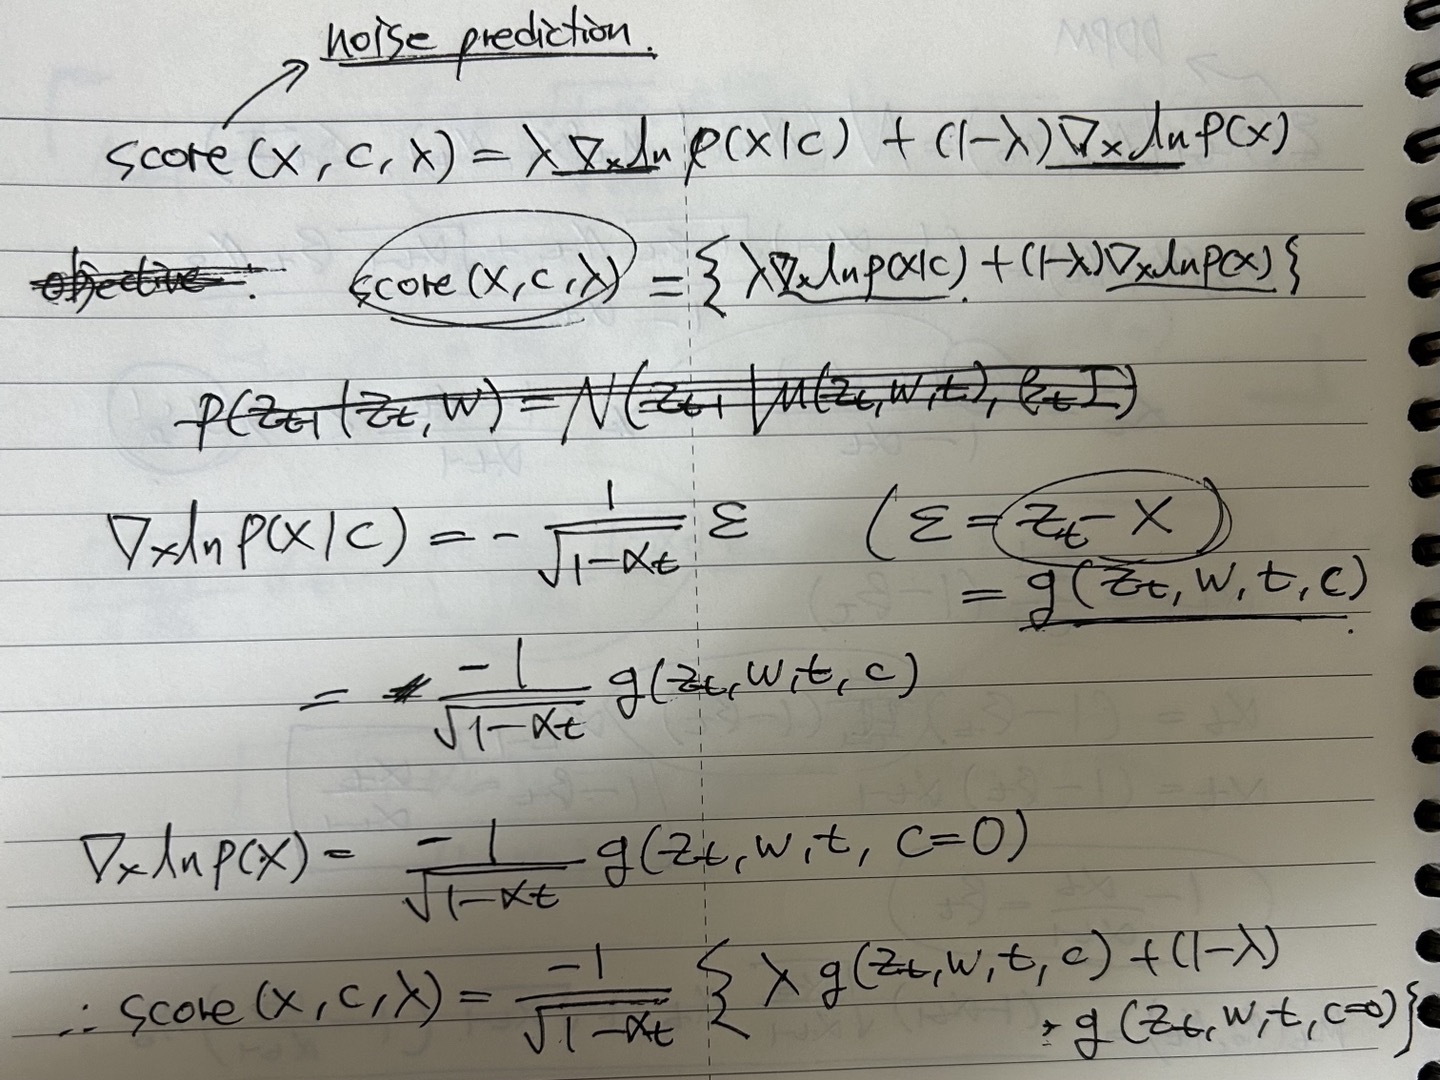 noise prediction.
score(x, c, λ) = λ ∇ₓ ln p(x|c) + (1-λ) ∇ₓ ln p(x)
objective : score(x, c, λ) = { λ∇ₓ ln p(x|c) + (1-λ)∇ₓ ln p(x) }
p(z_{t-1} | z_t, w) = N(z_{t-1} | μ(z_t, w, t), β_t I)
∇ₓ ln p(x|c) = - 1/√(1-α_t) ε ( ε = z_t - x )
= g(z_t, w, t, c)
= -1/√(1-α_t) g(z_t, w, t, c)
∇ₓ ln p(x) = -1/√(1-α_t) g(z_t, w, t, c=0)
∴ score(x, c, λ) = -1/√(1-α_t) { λ g(z_t, w, t, c) + (1-λ)
· g(z_t, w, t, c=0) }